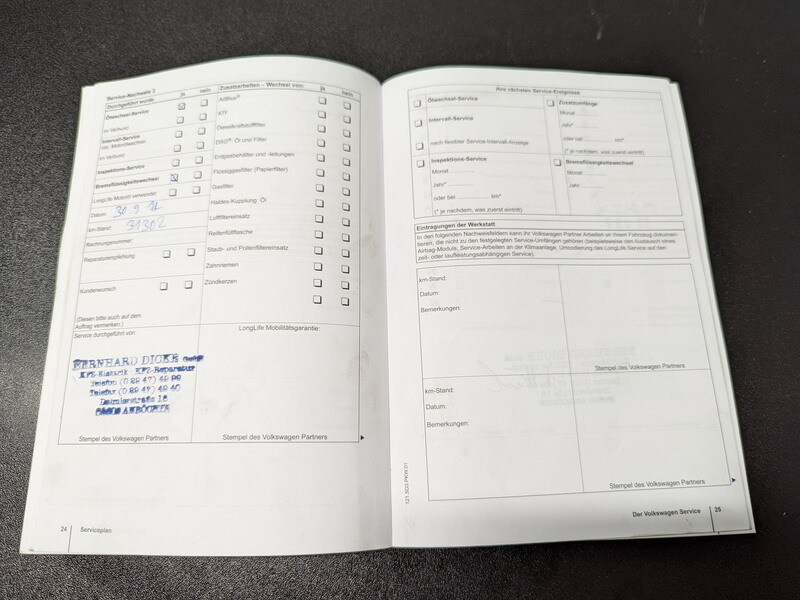 Service-Nachweis 2
Durchgeführt wurde: ja nein
Ölwechsel-Service
im Verbund
Intervall-Service
inkl. Motorölwechsel
im Verbund
Inspektions-Service
Bremsflüssigkeitswechsel
LongLife Mobilöl verwendet
Datum: 30.9.14
km-Stand: 31302
Rechnungsnummer:
Reparaturempfehlung
Kundenwunsch
(Diesen bitte auch auf dem
Auftrag vermerken.)
Service durchgeführt von:
BERNHARD DICKE GmbH
KFZ-Elektrik KFZ-Reparatur
Telefon (0 29 47) 49 99
Telefax (0 29 47) 49 40
Daimlerstraße 16
ANRÖCHTE
Stempel des Volkswagen Partners
Zusatzarbeiten – Wechsel von: ja nein
AdBlue®
Dieselkraftstofffilter
DSG® Öl und Filter
Entgasbehälter und -leitungen
Flüssiggasfilter (Papierfilter)
Gasfilter
Haldex-Kupplung Öl
Luftfiltereinsatz
Reifenfüllflasche
Staub- und Pollenfiltereinsatz
Zahnriemen
Zündkerzen
LongLife Mobilitätsgarantie:
Stempel des Volkswagen Partners
24 Serviceplan
Ihre nächsten Service-Ereignisse
Ölwechsel-Service
Intervall-Service
nach flexibler Service-Intervall-Anzeige
Inspektions-Service
Monat
Jahr*
oder bei km*
(* je nachdem, was zuerst eintritt)
Zusatzumfänge
Monat
Jahr*
oder bei km*
(* je nachdem, was zuerst eintritt)
Bremsflüssigkeitswechsel
Monat
Jahr
Eintragungen der Werkstatt
In den folgenden Nachweisfeldern kann Ihr Volkswagen Partner Arbeiten an Ihrem Fahrzeug dokumen-
tieren, die nicht zu den festgelegten Service-Umfängen gehören (beispielsweise den Austausch eines
Airbag-Moduls, Service-Arbeiten an der Klimaanlage, Umcodierung des LongLife Service auf den
zeit- oder laufleistungsabhängigen Service).
km-Stand:
Datum:
Bemerkungen:
Stempel des Volkswagen Partners
km-Stand:
Datum:
Bemerkungen:
Stempel des Volkswagen Partners
Der Volkswagen Service 25